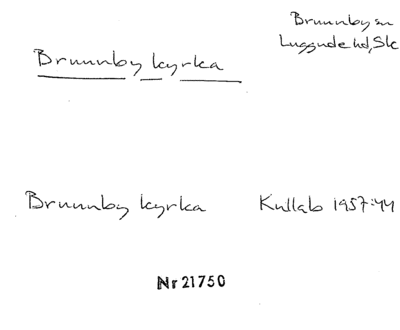 Brunnby sn
Luggude hd, Sk
Brunnby kyrka
Brunnby kyrka Kullab 1957:44
Nr 21750